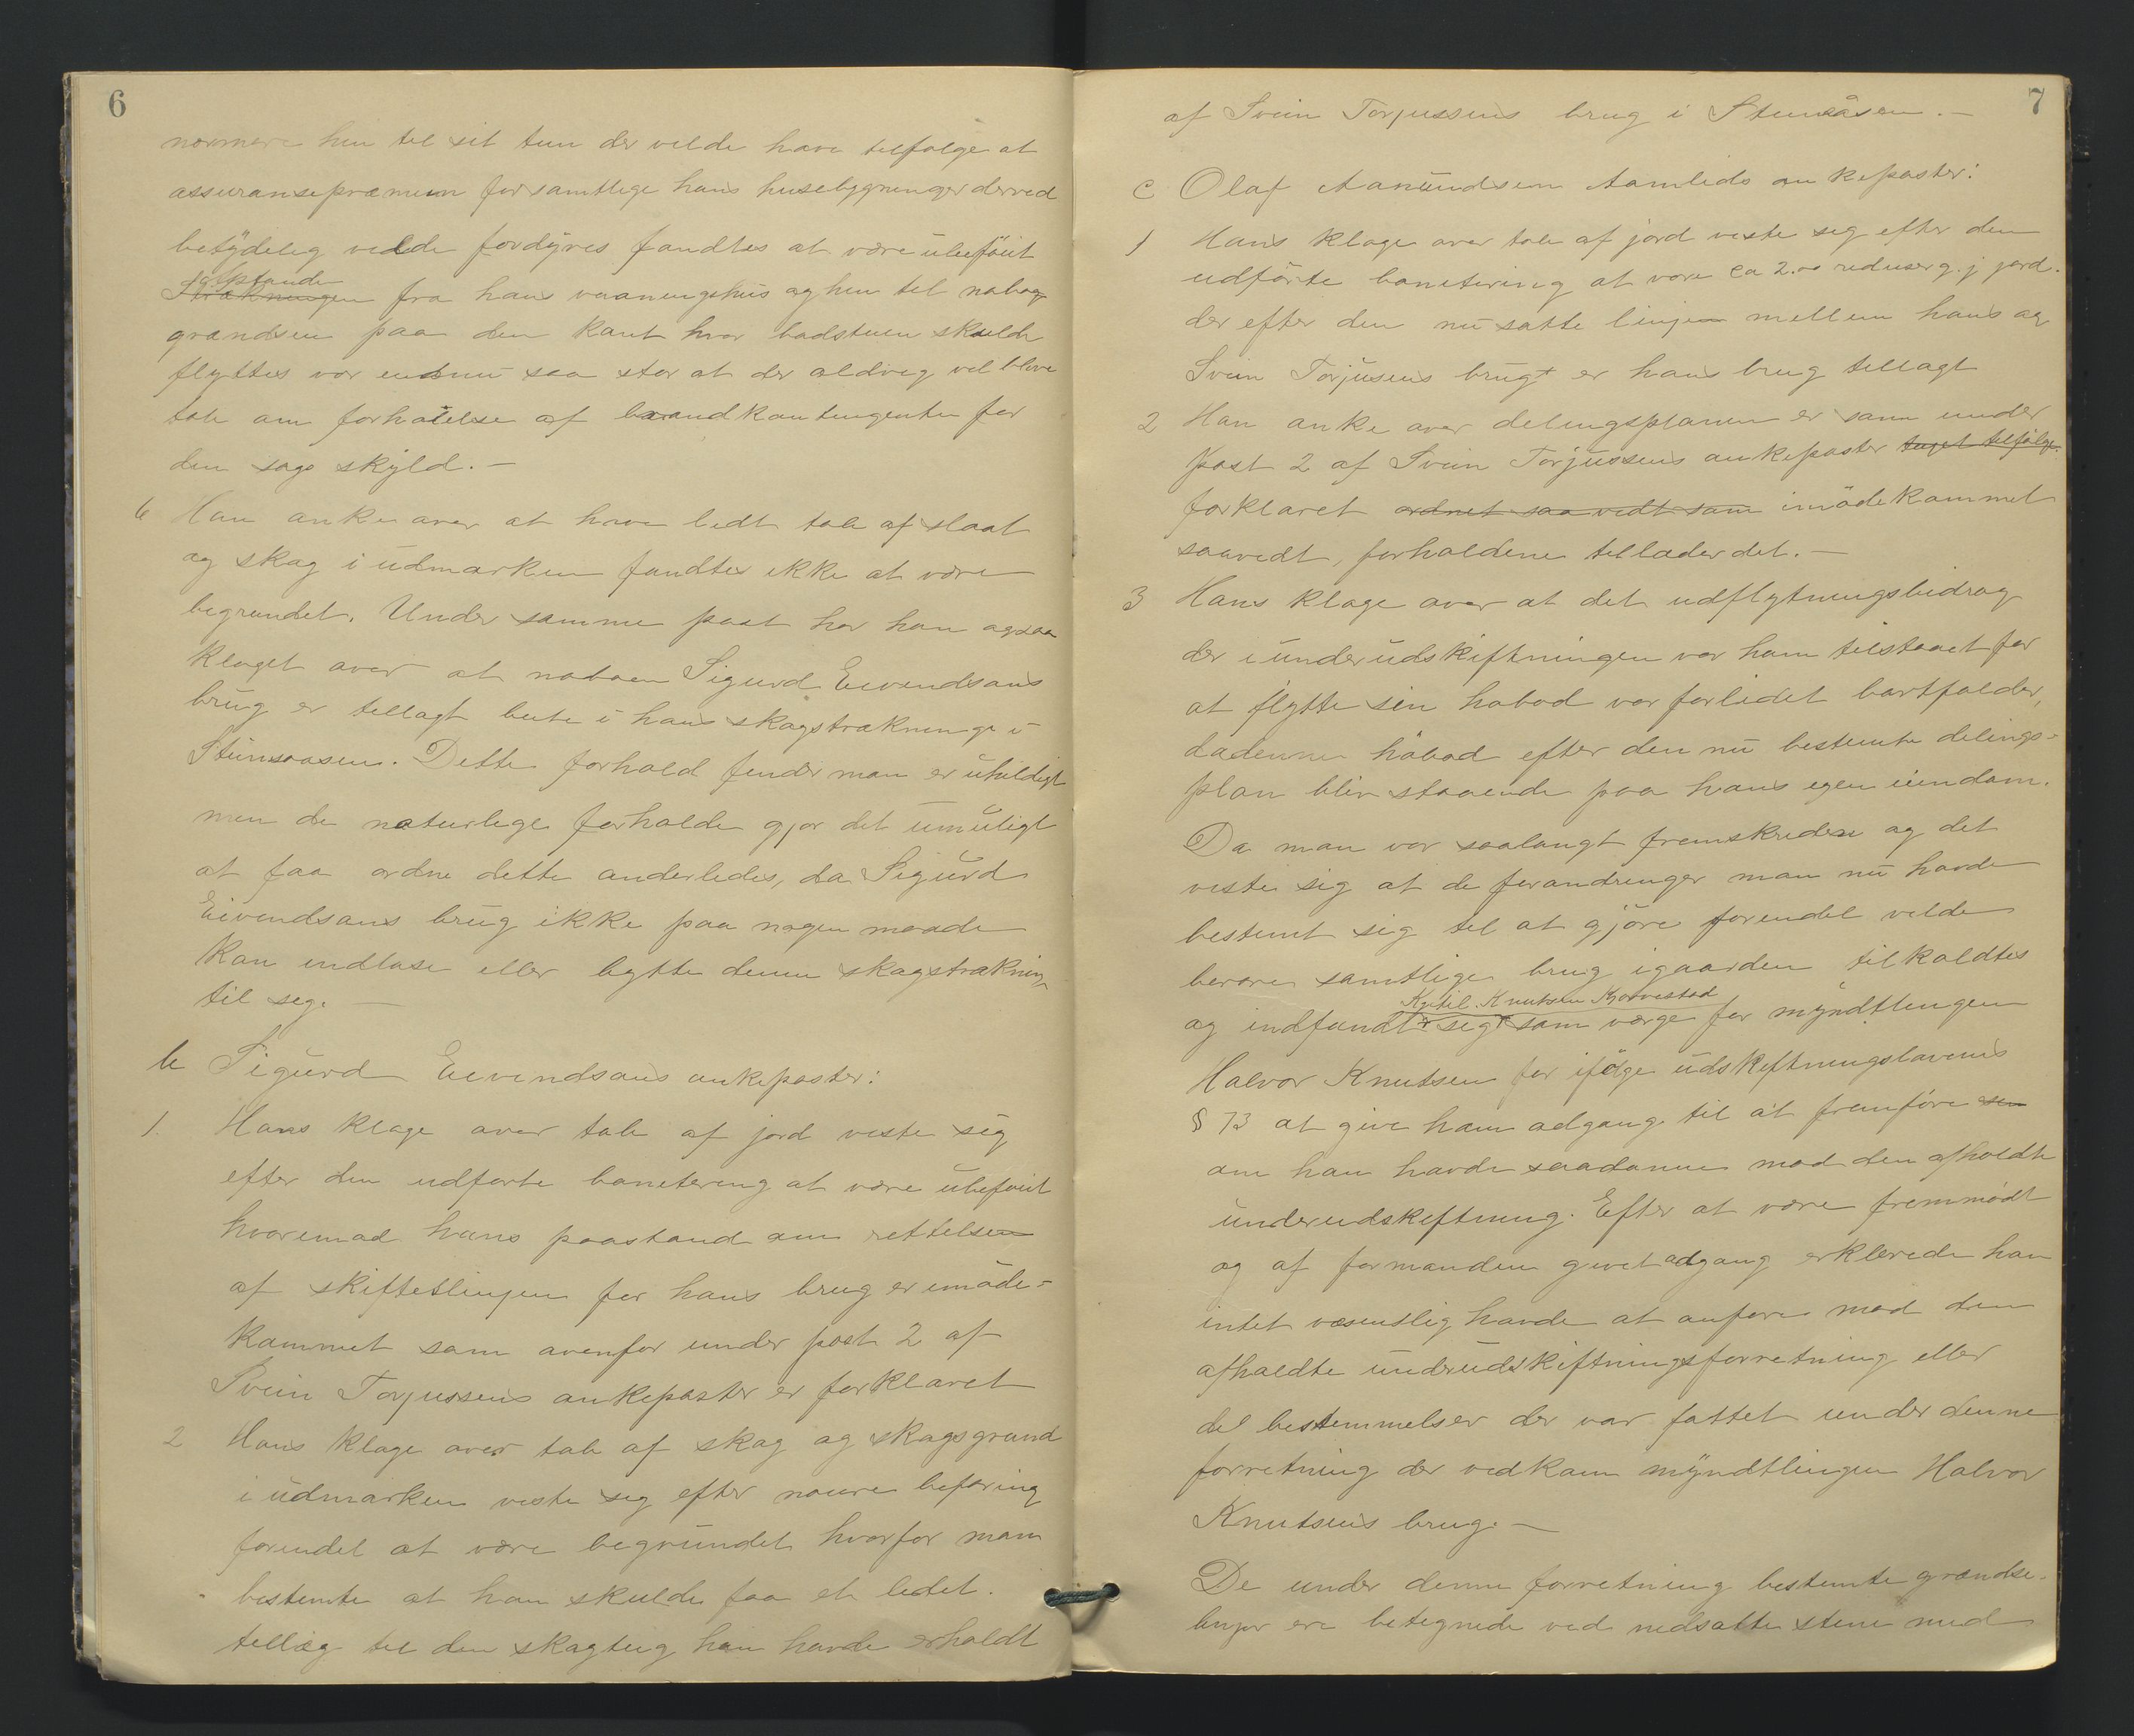 6
nærmere hen til sit tun der vilde have tilfølge at
assuransepræmien for samtlige hans husebygninger derved
betydelig vilde fordyres fandtes at være ubeföiet
Afstanden
Strækningen fra hans vaaningshus og hen til nabog
grændsen paa den kant hvor badstuen skulde
flyttes var endnu saa stor at der aldrig vil blive
tale om forhøielse af brandkontingenten for
den sags skyld. —
6 Han anker over at have lidt tab af slaat
og skog i udmarken fandtes ikke at være
begrundet. Under samme post har han ogsaa
klaget over at naboen Sigurd Eivendsøns
brug er tillagt beite i hans skogstrækninge i
Stensaasen. Dette forhold finder man er uheldigt
men de naturlige forholde gjør det umuligt
at faa ordne dette anderledes, da Sigurd
Eivendsøns brug ikke paa nogen maade
kan indløse eller bytte denne skogstrækning
til sig. —
b Sigurd Eivendsøns ankeposter:
1. Hans klage over tab af jord viste sig
efter den udførte bonitering at være ubeføiet
hvorimod hans paastand om rettelsen
af skiftetlinjen for hans brug er imøde-
kommet som ovenfor under post 2 af
Svein Torjussens ankeposter er forklaret
2 Hans klage over tab af skog og skogsgrund
i udmarken viste sig efter nøiere befaring
forendel at være begrundet hvorfor man
bestemte at han skulde faa et lidet
tillæg til den skogteig han havde erholdt
7
af Svein Torjussens brug i Stensåsen. —
C Olaf Aanundsen Aamlids ankeposter:
1 Hans klage over tab af jord viste seg efter den
udførte bonitering at være ca 2.00 reduserg. j jord.
der efter den nu satte linjen mellem hans og
Svein Torjusens brugt er hans brug tillagt
2 Han anke over delingsplanen er som under
Post 2 af Svein Torjussens ankeposter taget tilfølge.
forklaret ordnet saavidt som imødekommet
saavidt, forholdene tillader det. —
3 Hans klage over at det udflytningsbidrag
der i underudskiftningen var ham tilstaaet for
at flytte sin høbod var forlidet bortfalder,
da denne høbod efter den nu bestemte delings-
plan bliv staaende paa hans egen eiendom.
Da man var saalangt fremskreden og det
viste sig at de forandringer man nu havde
bestemt sig til at gjøre forendel vilde
berøre samtlige brug i gaarden tilkaldtes
Kjetil Knutsen Kjørvestad
og indfandt sig som værge for myndtlingen
Halvor Knutsen for ifølge udskiftningslovens
§ 73 at give ham adgang til at fremføre sen
om han havde saadanne mod den afholdte
underudskiftning. Efter at være fremmødt
og af formanden givet adgang erklærede han
intet væsentlig havde at anføre mod den
afholdte underudskiftningsforretning eller
de bestemmelser der var fattet under denne
forretning der vedkom myndtlingen Halvor
Knutsens brug. —
De under denne forretning bestemte grændse-
linjer ere betegnede ved nedsatte stene med